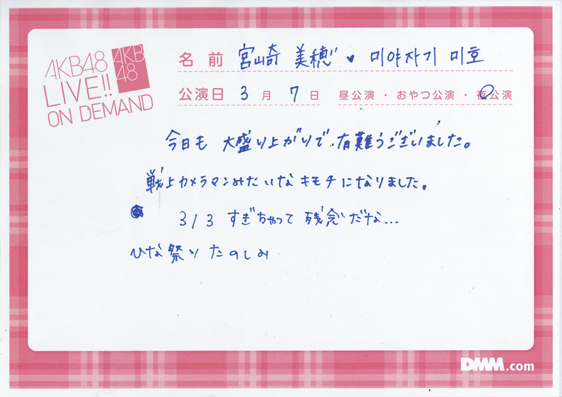 AKB48
LIVE!!
ON DEMAND
AKB
48
名前 宮崎 美穂 ♥ 미야자키 미호
公演日 3月7日 昼公演・おやつ公演・夜公演
今日も 大盛り上がりで、有難うございました。
戦上カメラマンみたいなキモチになりました。
3/3 すぎちゃって 残念だな...
ひな祭り たのしみ
DMM.com